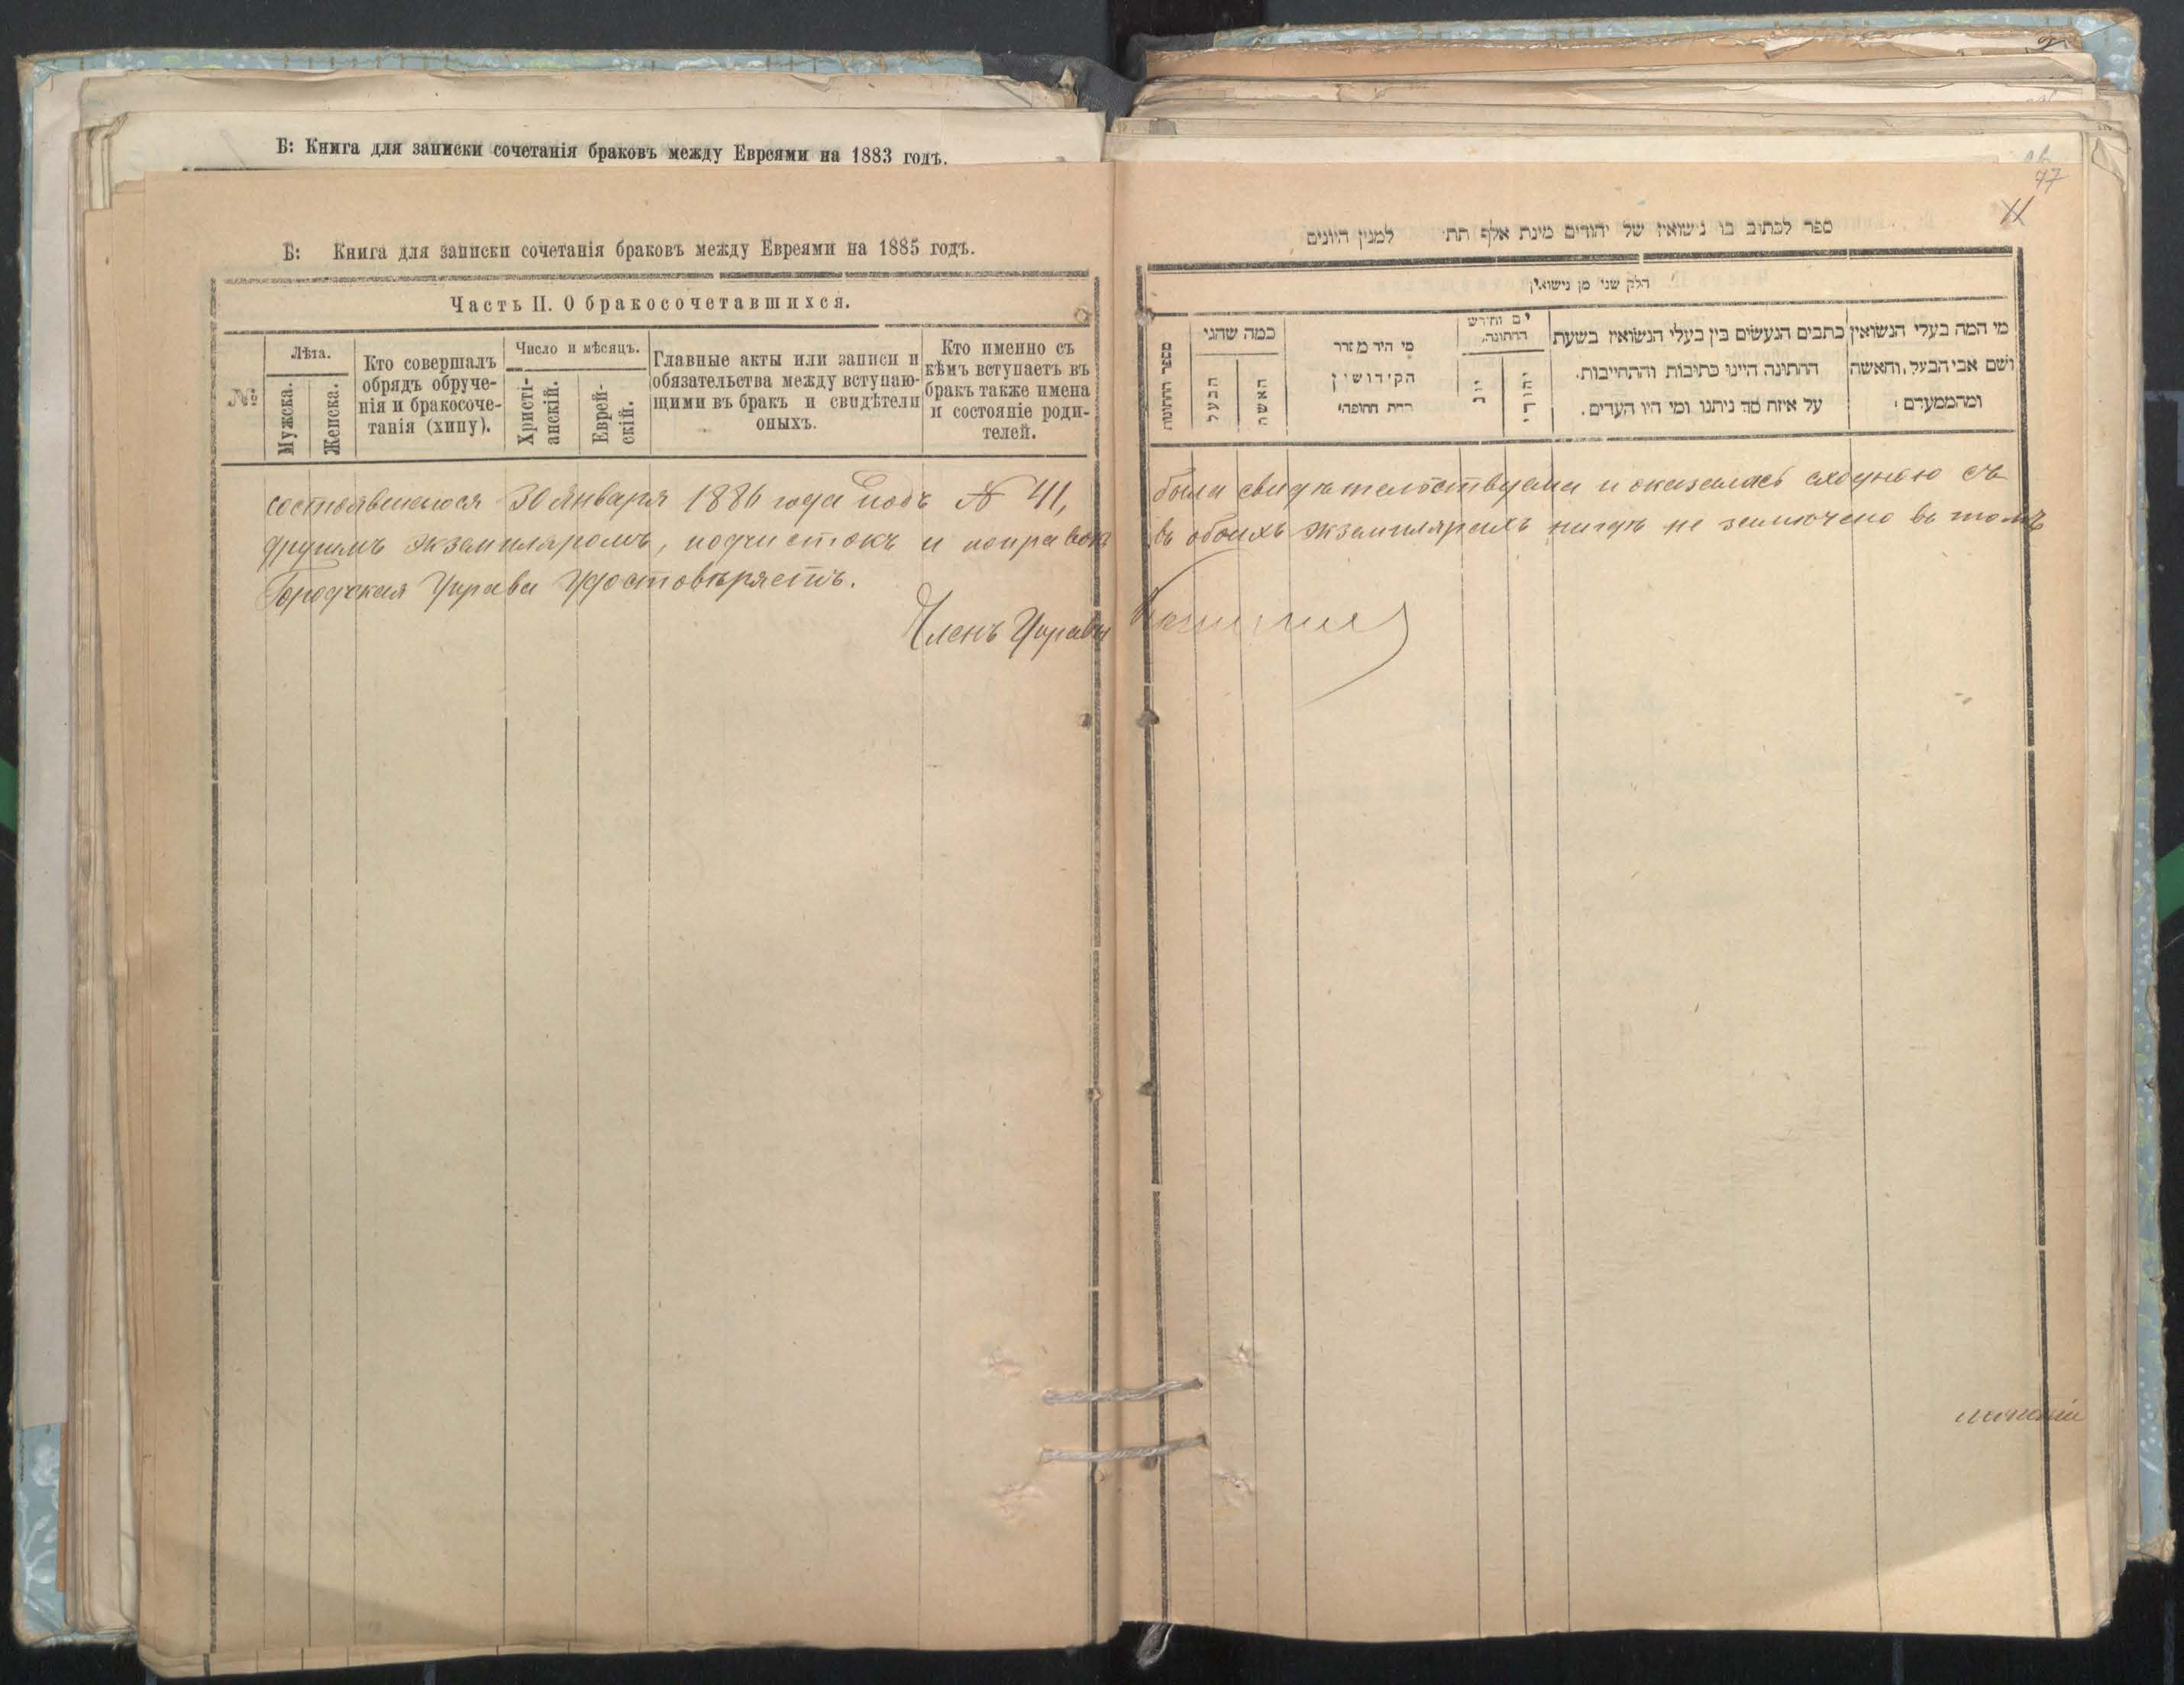 Б: Книга для записки сочетанія браковъ между Евреями на 1883 годъ.
Б: Книга для записки сочетанія браковъ между Евреями на 1885 годъ.
Часть II. О бракосочетавшихся.
№
Лѣта.
Мужска.
Женска.
Кто совершалъ
обрядъ обруче-
нія и бракосоче-
танія (хипу).
Число и мѣсяцъ.
Христі-
анскій.
Еврей-
скій.
Главные акты или записи и
обязательства между вступаю-
щими въ бракъ и свидѣтели
оныхъ.
Кто именно съ
кѣмъ вступаетъ въ
бракъ также имена
и состояніе роди-
телей.
состоявшемося 30 Января 1886 года подъ № 41,
другимъ экземпляромъ, подчистокъ и поправокъ
Городская Управа Удостовѣряетъ.
Членъ Управы
77
11
ספר לכתוב בו נישואין של יהודים מינת אלף תת' למנין היונים
חלק שני מן נישואין
מספר החתונות
כמה שהני
הבעל
האשה
מי היד מזדר
הקידושין
תחת החופה׃
יום וחודש
החתונה.
יוני
יהודי
כתבים הנעשים בין בעלי הנשואין בשעת
החתונה היינו כתיבות והתחייבות.
על איזה סך ניתנו ומי היו העדים.
מי המה בעלי הנשואין
ושם אבי הבעל, והאשה
ומהממעדם׃
была свидѣтельствуема и оказалась сходною съ
въ обоихъ экземплярахъ нигдѣ не замючено въ томъ